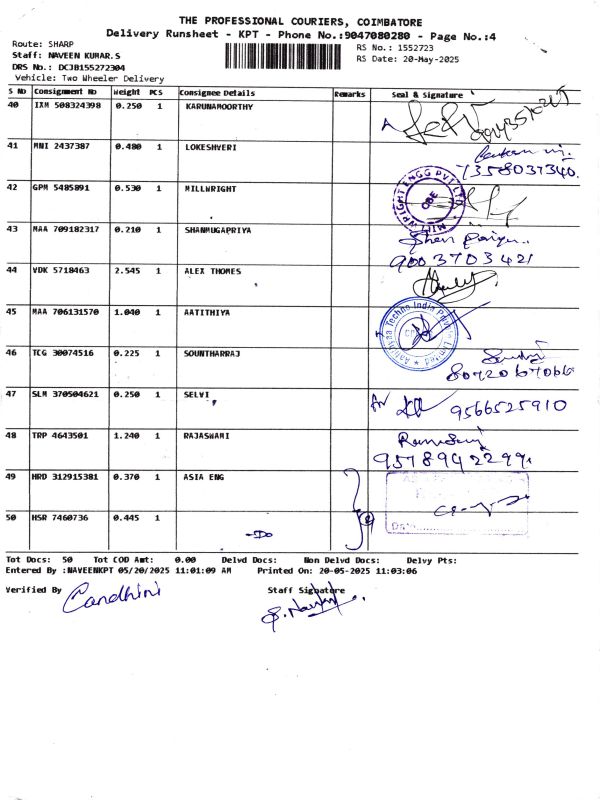 THE PROFESSIONAL COURIERS, COIMBATORE
Delivery Runsheet - KPT - Phone No.:9047080280 - Page No.:4
Route: SHARP
Staff: NAVEEN KUMAR.S
DRS No.: DCJB155272304
Vehicle: Two Wheeler Delivery
RS No.: 1552723
RS Date: 20-May-2025
S No Consignment No Weight PCS Consignee Details Remarks Seal & Signature
40 IXM 508324398 0.250 1 KARUNAMOORTHY
41 MNI 2437387 0.480 1 LOKESHVERI
7358037340.
42 GPM 5485891 0.530 1 MILLWRIGHT
MILLWRIGHT ENGG PVT LTD
CBE
43 MAA 709182317 0.210 1 SHANMUGAPRIYA
9003703421
44 VDK 5718463 2.545 1 ALEX THOMES
45 MAA 706131570 1.040 1 AATITHIYA
Techno India Private Limited
46 TCG 30074516 0.225 1 SOUNTHARRAJ
8072067066
47 SLM 370504621 0.250 1 SELVI
9566525910
48 TRP 4643501 1.240 1 RAJASWAMI
9578942299
49 HRD 312915381 0.370 1 ASIA ENG
50 HSR 7460736 0.445 1
-Do
Date
Tot Docs: 50 Tot COD Amt: 0.00 Delvd Docs: Non Delvd Docs: Delvy Pts:
Entered By :NAVEENKPT 05/20/2025 11:01:09 AM Printed On: 20-05-2025 11:03:06
Verified By Gandhini
Staff Signature